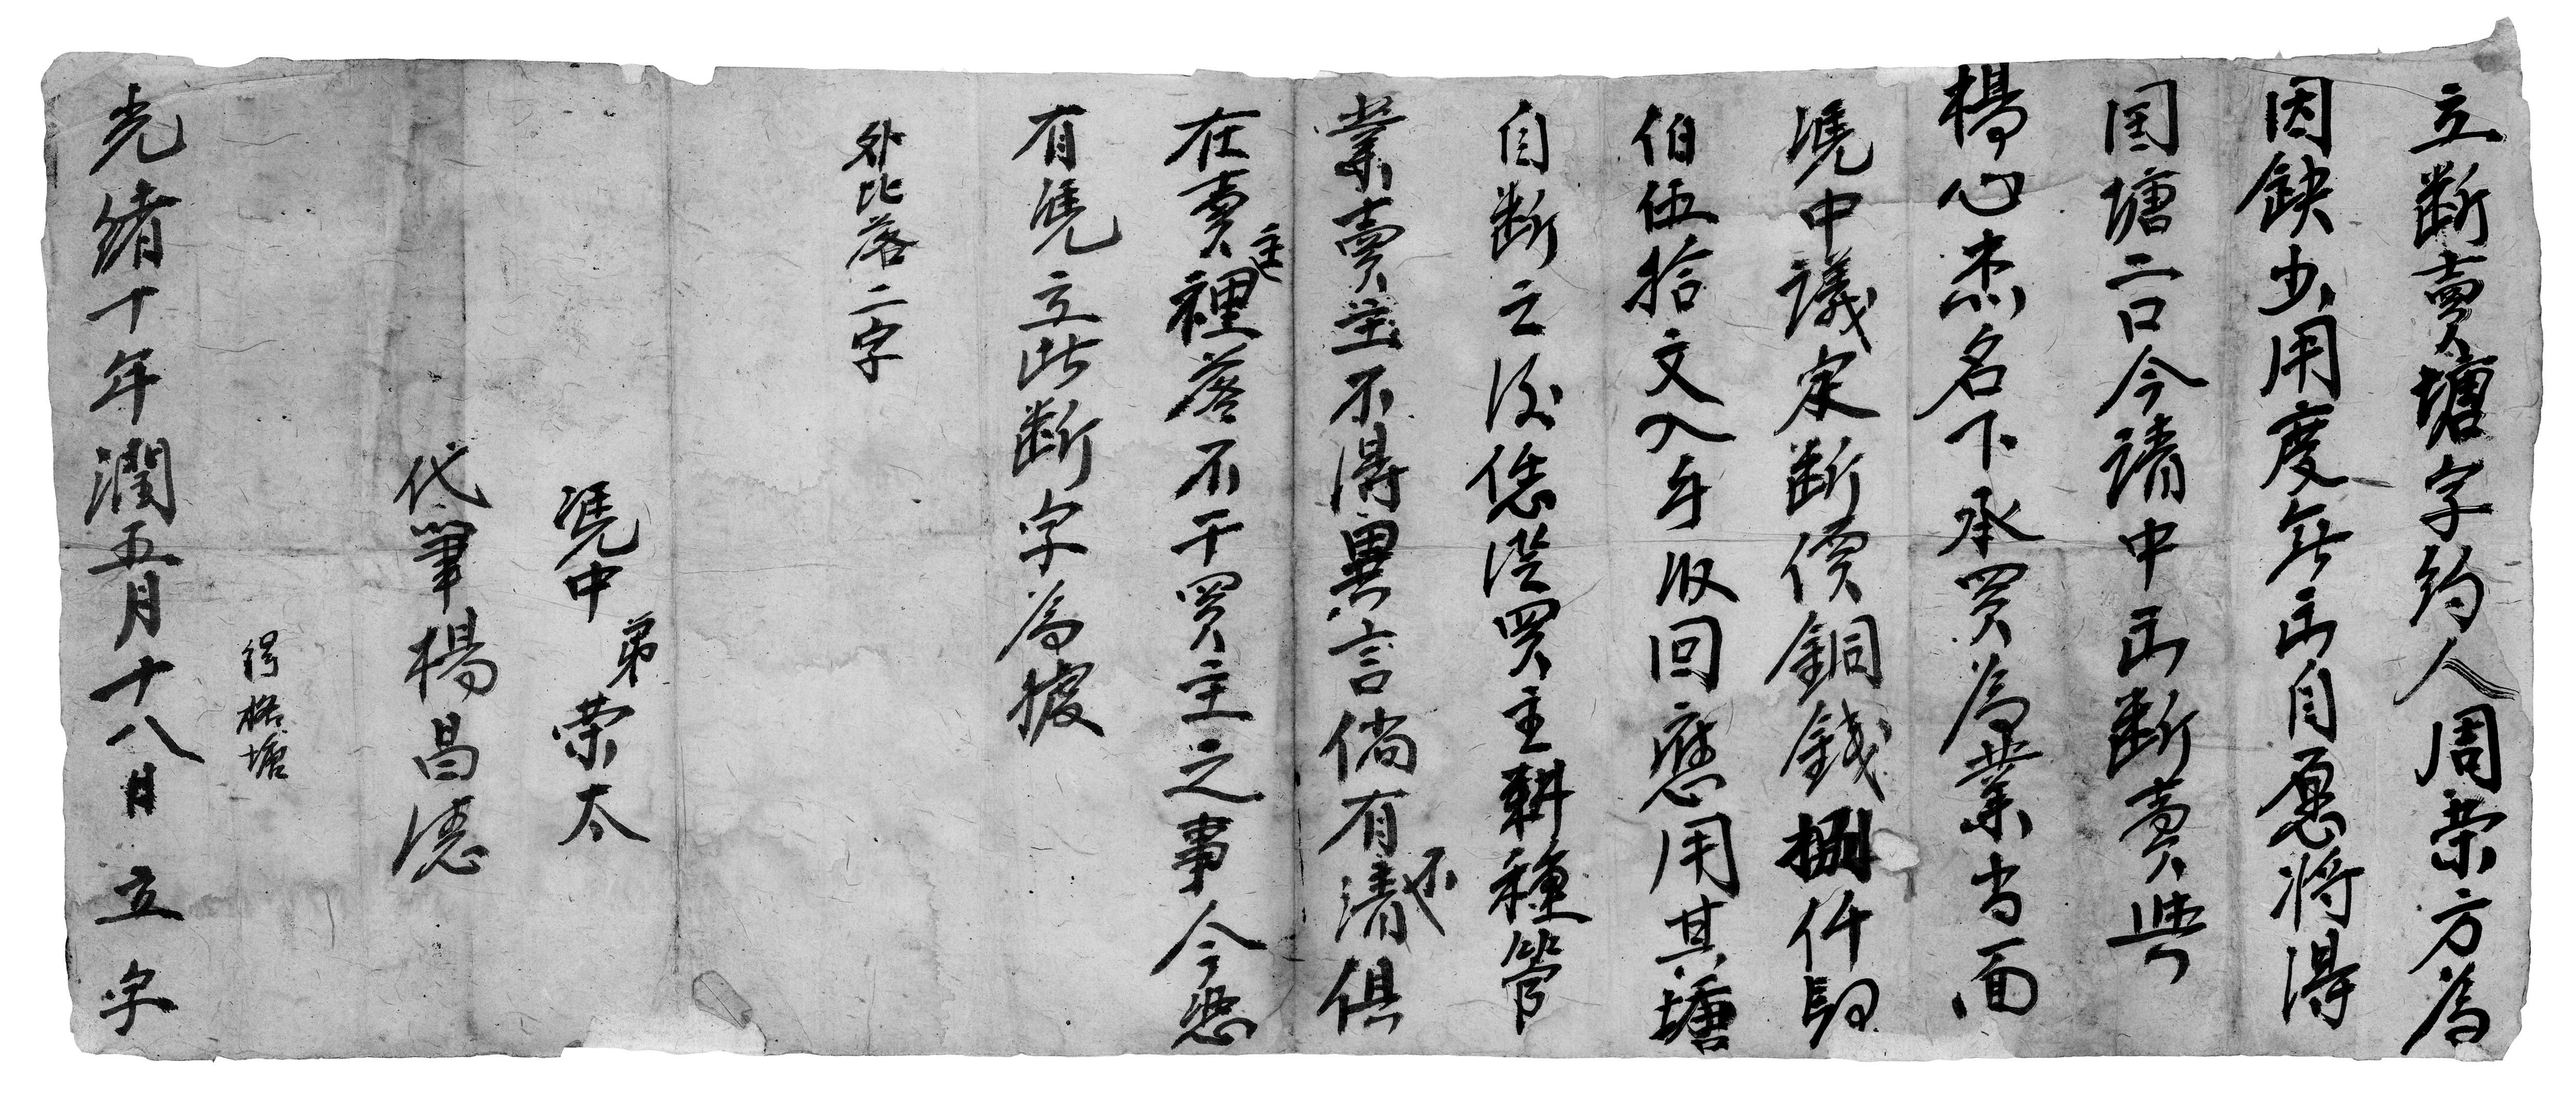 立断賣塘字約人周荣方為
因缺少用度無出自愿将得
国塘二口今請中出断賣與
楊心杰名下承買為業当面
凴中議定断價銅錢捌仟
伯伍拾文入手收回應用其塘
自断之後恁從買主耕種管
業賣主不得異言倘有不清俱
在賣主裡落不干買主之事今恐
有凴立此断字為據
外比落二字
凴中 弟荣太
代筆楊昌德
塘
光緒十年潤五月十八日 立 字